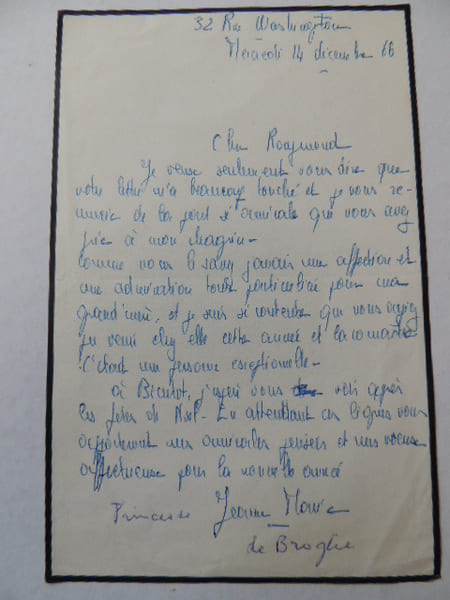 32 Rue Washington
Mercredi 14 décembre 66
Cher Raymond
Je veux seulement vous dire que
votre lettre m'a beaucoup touché et je vous re-
mercie de la part si amicale que vous avez
prise à mon chagrin -
Comme vous le savez j'avais une affection et
une admiration toute particulière pour ma
grand'mère, et je suis si contente que vous ayiez
pu venir chez elle cette année et la connaître
C'était une personne exceptionnelle -
à Bientôt, j'espère vous voir après
les fêtes de Noël - En attendant ces lignes vous
apporteront mes amicales pensées et mes voeux
affectueux pour la nouvelle année
Princesse Jeanne Marie
de Broglie